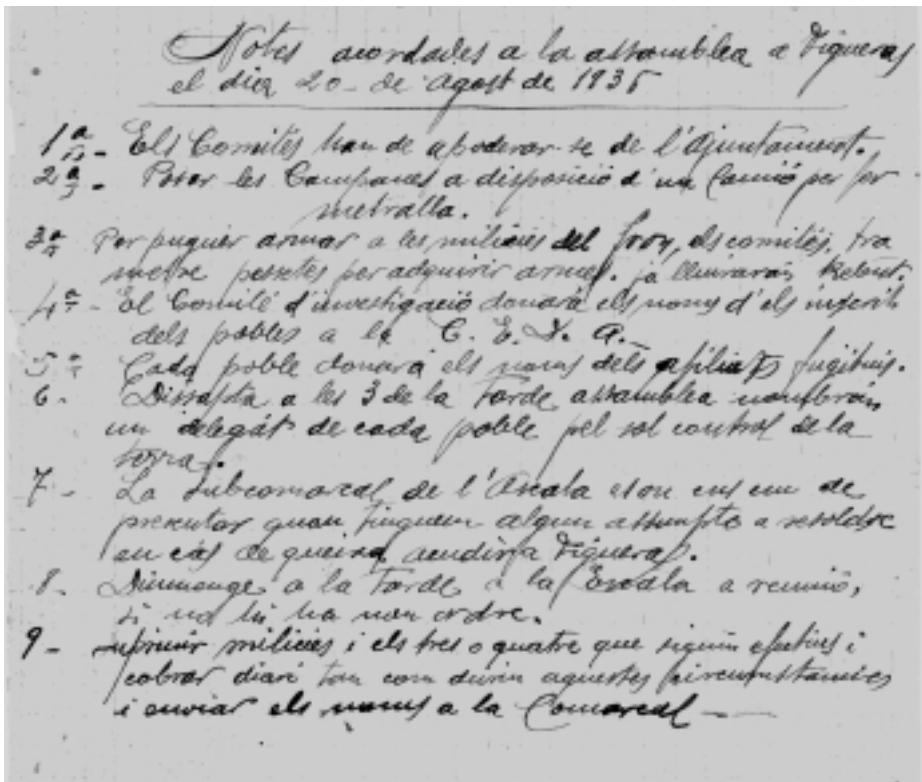 Notes acordades a la assamblea a Figueras
el dia 20 - de agost de 1936
1ª - Els Comités han de apoderar-se de l'Ajuntament.
2ª - Posar les Campanes a disposició d'un Camió per fer
metralla.
3ª Per puguer armar a les milicies del front, els comités, tra
metre pessetes per adquirir armes. ja lliuraran Rebut.
4ª - El Comité d'investigació donará els noms d'els inscrits
dels pobles a la C. E. D. A.
5ª Cada poble donará els noms dels afiliats fugitius.
6 - Dissapta a les 3 de la Tarde assamblea nombrán
un delegát de cada poble pel sol control de la
terra.
7 - La Subcomarcal de l'Ascala es on ens em de
presentar quan tinguem algun assumpto a resoldre
en cás de queixa acudir a Figueras.
8 - Diumenge a la Tarde a la Escala a reunió,
si no hi ha nou ordre.
9 - suprimir milicies i els tres o quatre que siguin efectius i
cobrar diari tan com durin aquestes circumstancies
i enviar els noms a la Comarcal